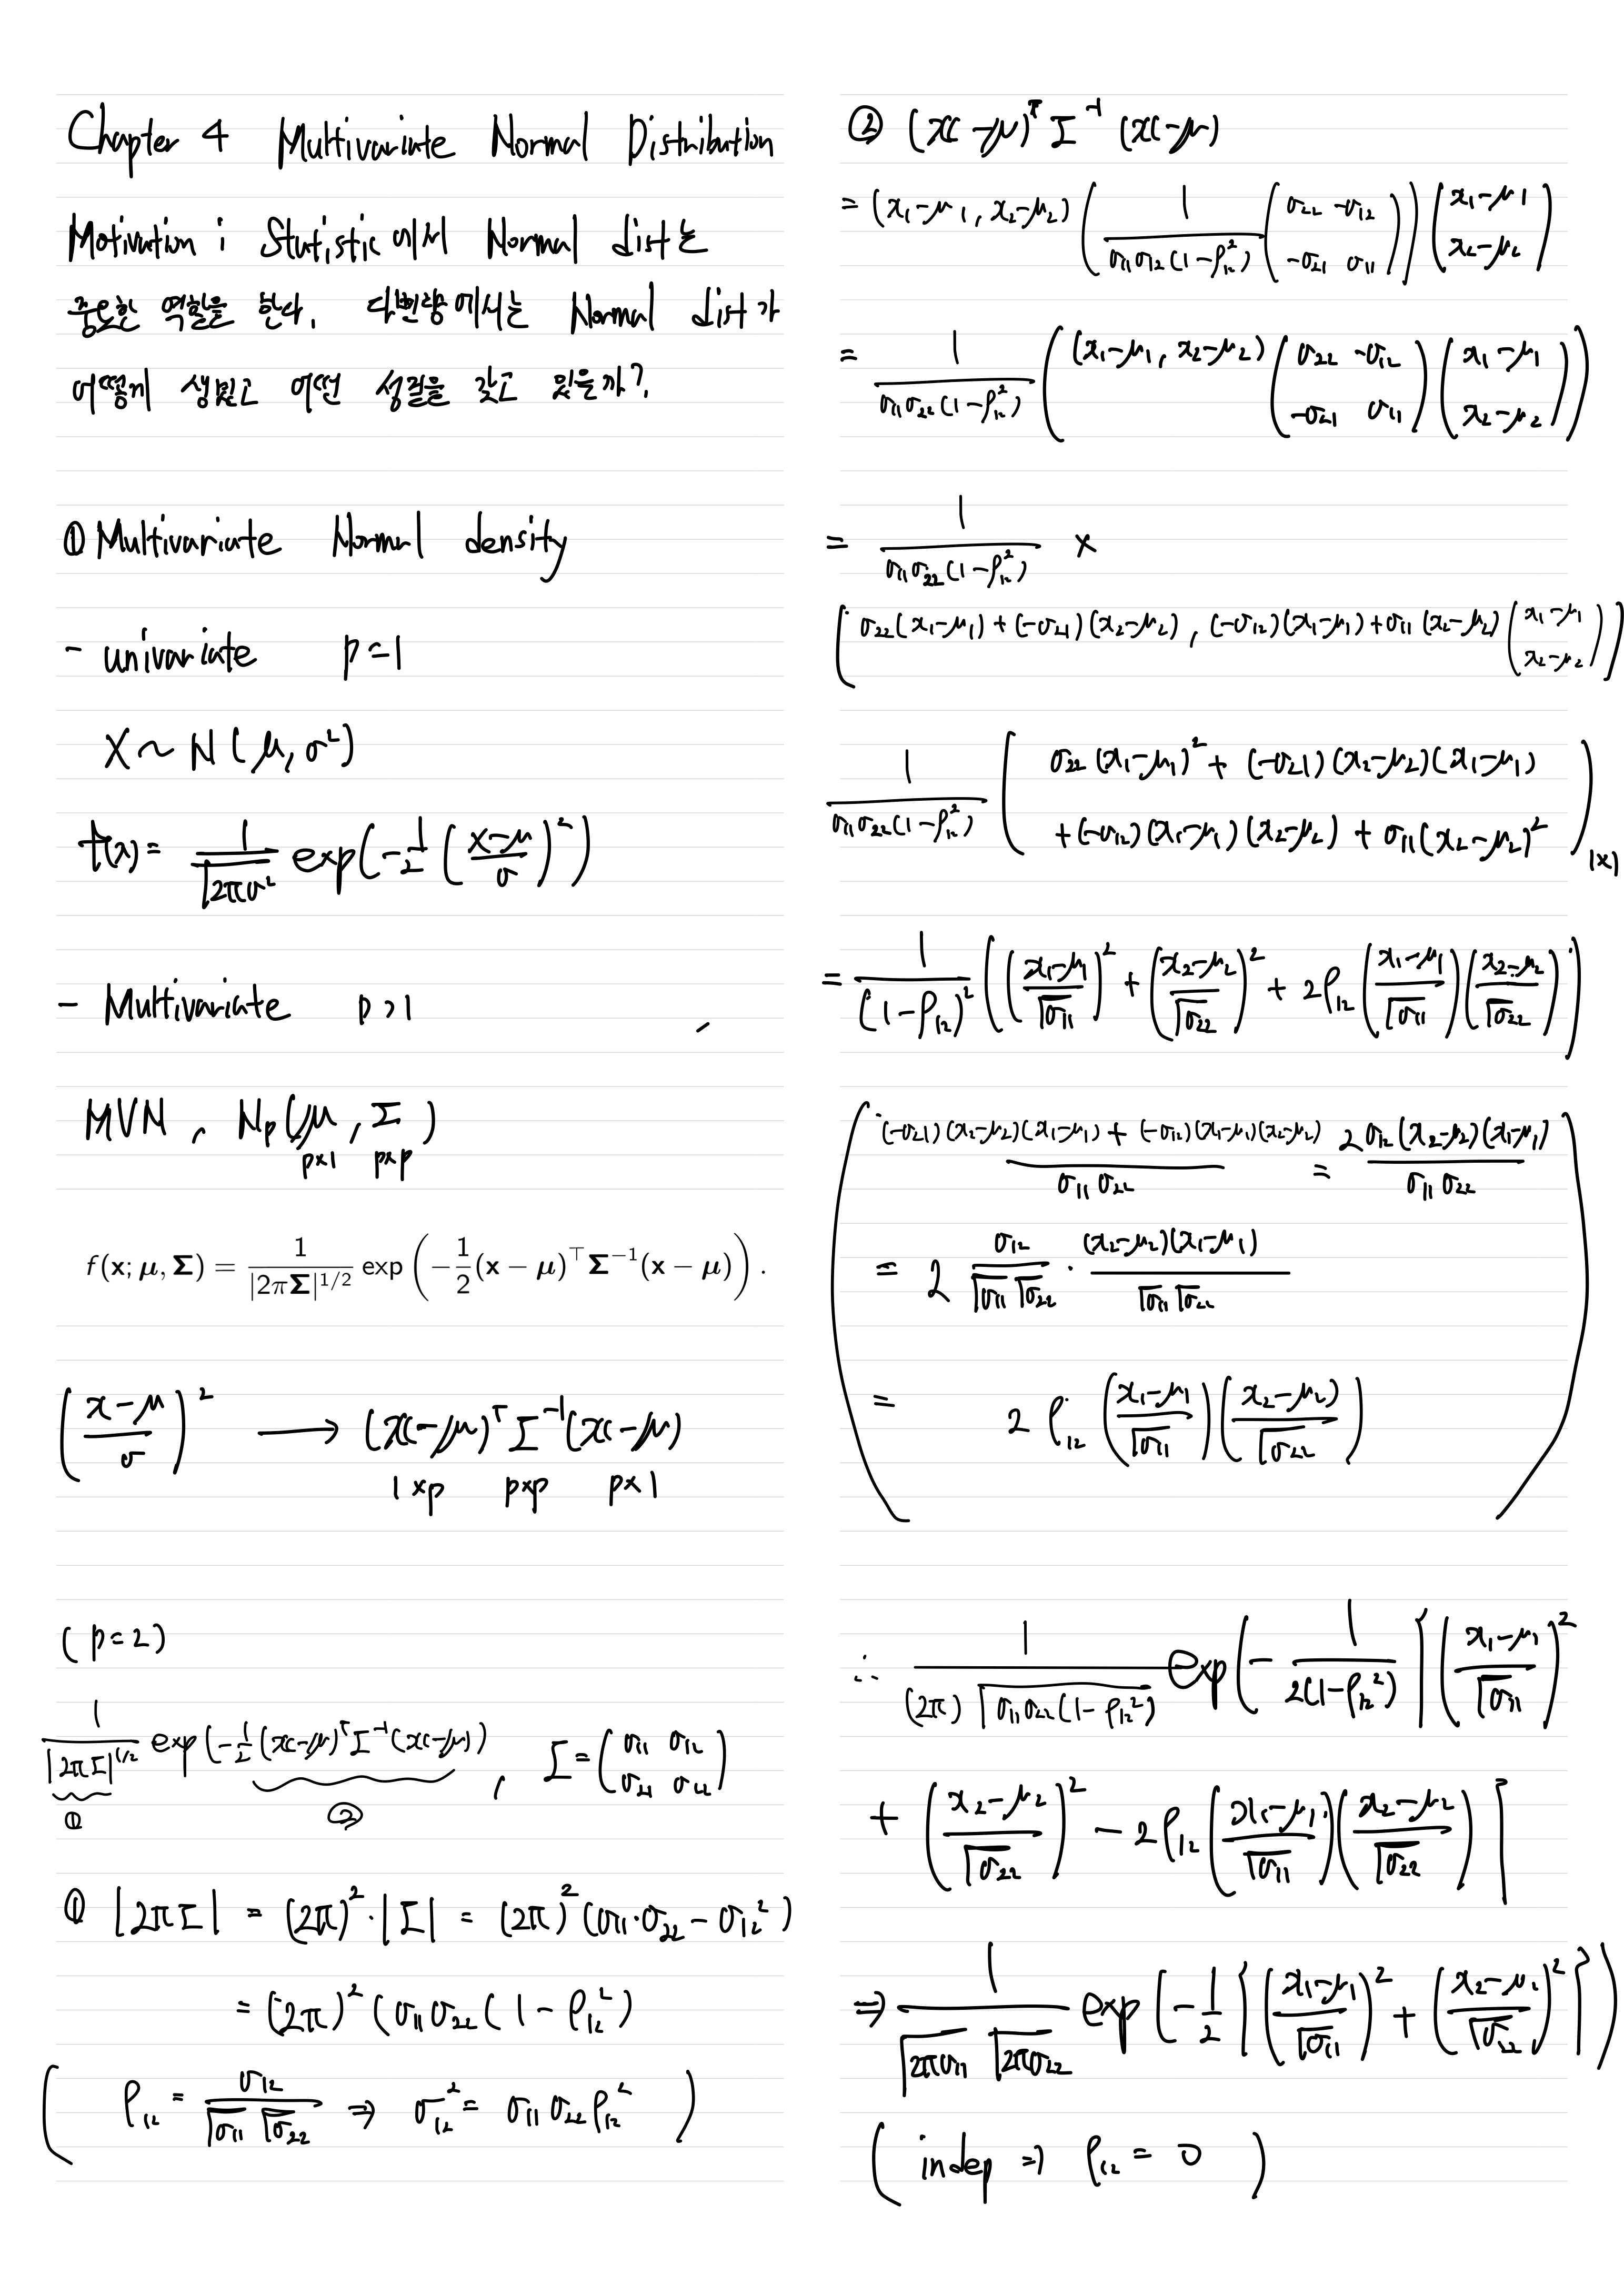 Chapter 4 Multivariate Normal Distribution
Motivation ; Statistic 에서 Normal dist 는
중요한 역할을 한다. 다변량에서는 Normal dist가
어떻게 생겼고 어떤 성질을 갖고 있을까?
① Multivariate Normal density
- univariate p=1
X ~ N(μ, σ²)
f(x) = 1/√(2πσ²) exp(-1/2 ((x-μ)/σ)²)
- Multivariate p>1
MVN, N_p(μ, Σ)
p×1 p×p
f(x; μ, Σ) = 1/|2πΣ|^{1/2} exp(-1/2 (x − μ)^⊤ Σ^{−1} (x − μ)).
((x-μ)/σ)² → (x-μ)^T Σ^{-1} (x-μ)
1×p p×p p×1
(p=2)
1/|2πΣ|^{1/2} exp(-1/2 (x-μ)^T Σ^{-1} (x-μ)), Σ = (σ11 σ12 ; σ21 σ22)
① ②
① |2πΣ| = (2π)²·|Σ| = (2π)² (σ11·σ22 - σ12²)
= (2π)² (σ11 σ22 (1 - ρ12²)
( ρ12 = σ12/(√σ11 √σ22) ⇒ σ12² = σ11 σ22 ρ12² )
② (x-μ)^T Σ^{-1} (x-μ)
= (x1-μ1, x2-μ2) ( 1/(σ11σ12(1-ρ12²)) (σ22 -σ12 ; -σ21 σ11) ) (x1-μ1 ; x2-μ2)
= 1/(σ11σ22(1-ρ12²)) ( (x1-μ1, x2-μ2) (σ22 -σ12 ; -σ21 σ11) (x1-μ1 ; x2-μ2) )
= 1/(σ11σ22(1-ρ12²)) ×
( σ22(x1-μ1) + (-σ21)(x2-μ2), (-σ12)(x1-μ1) + σ11(x2-μ2) (x1-μ1 ; x2-μ2) )
1/(σ11σ22(1-ρ12²)) ( σ22(x1-μ1)² + (-σ21)(x2-μ2)(x1-μ1)
+ (-σ12)(x1-μ1)(x2-μ2) + σ11(x2-μ2)² ) 1×1
= 1/(1-ρ12)² ( ((x1-μ1)/√σ11)² + ((x2-μ2)/√σ22)² + 2ρ12 ((x1-μ1)/√σ11) ((x2-μ2)/√σ22) )
( ((-σ21)(x2-μ2)(x1-μ1) + (-σ12)(x1-μ1)(x2-μ2))/(σ11 σ22) = 2 σ12(x2-μ2)(x1-μ1)/(σ11 σ22)
= 2 σ12/(√σ11 √σ22) · (x2-μ2)(x1-μ1)/(√σ11 √σ22)
= 2 ρ12 ((x1-μ1)/√σ11) ((x2-μ2)/√σ22) )
∴ 1/((2π) √(σ11σ22(1-ρ12²))) exp( - 1/(2(1-ρ12²)) { ((x1-μ1)/√σ11)²
+ ((x2-μ2)/√σ22)² - 2ρ12 ((x1-μ1)/√σ11) ((x2-μ2)/√σ22) }
⇒ 1/(√(2πσ11) √(2πσ22)) exp( -1/2 { ((x1-μ1)/√σ11)² + ((x2-μ2)/√σ22)² } )
( indep ⇒ ρ12 = 0 )